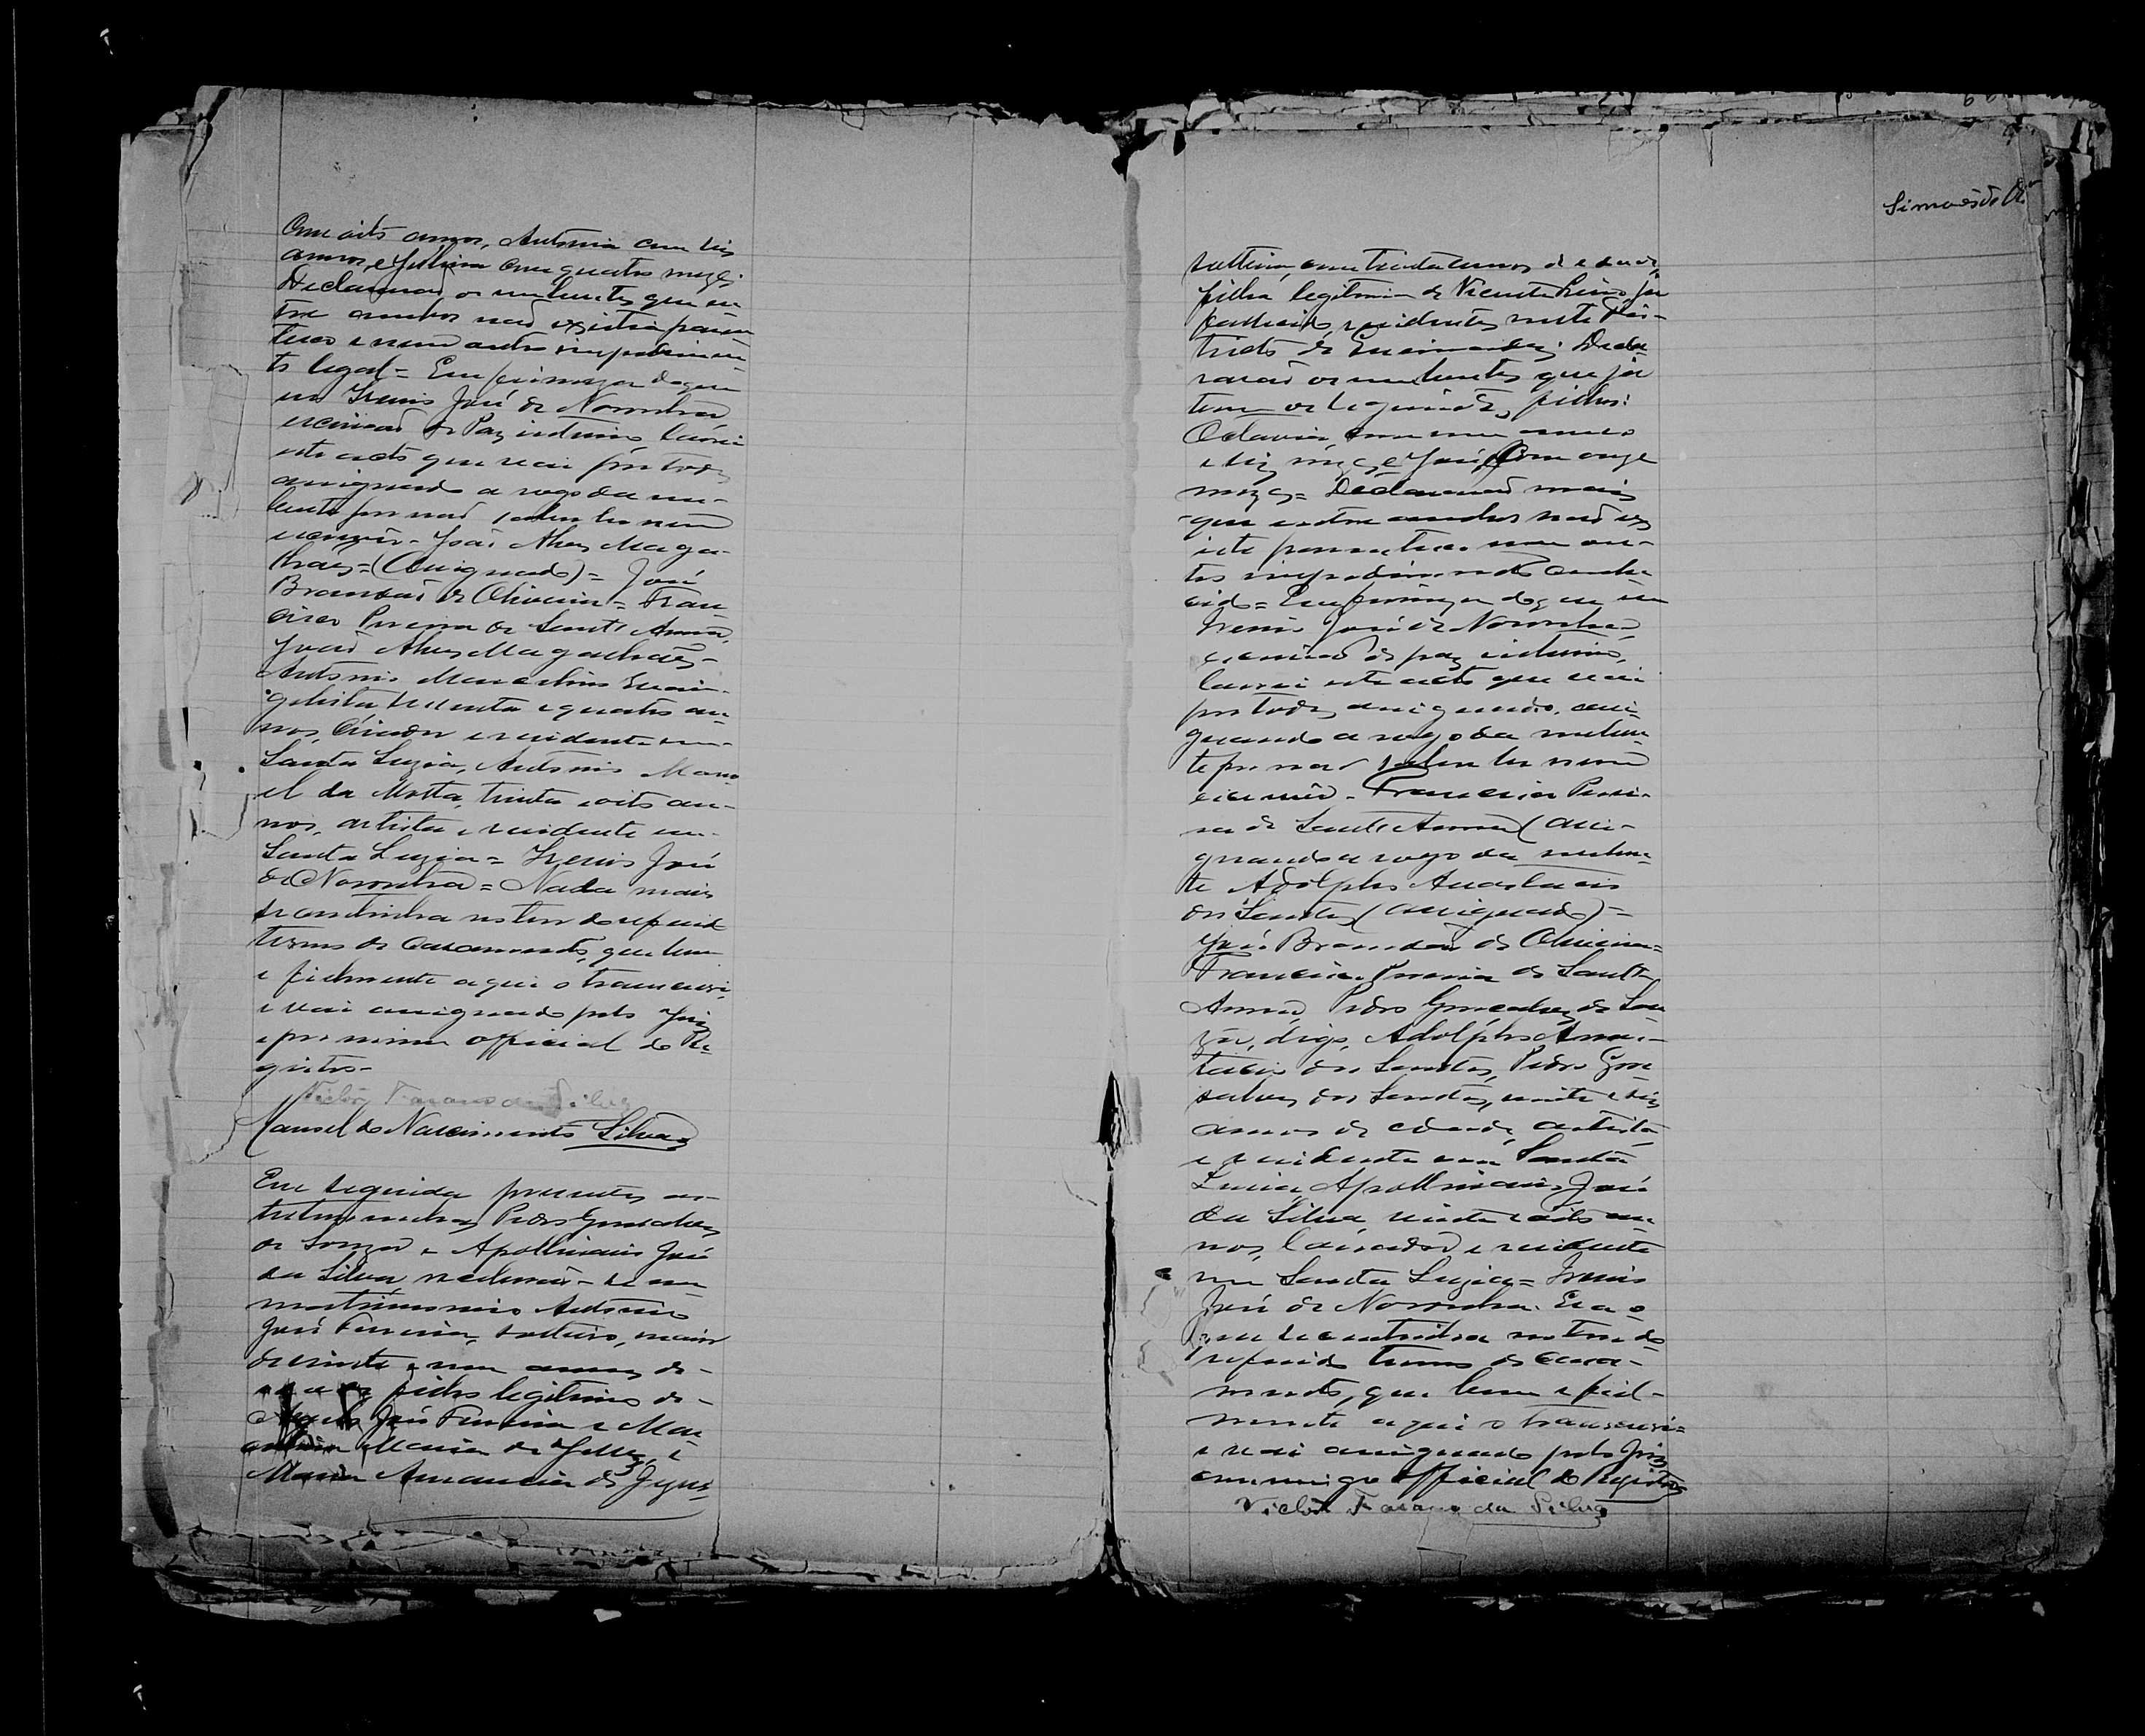 com oito annos, Antonia com seis
annos, e Julia com quatro mezes.
Declararão os nubentes que en-
tre ambos não existia paren-
tesco e nem outro impedimen-
to legal = Em firmeza do que
eu Irenio José de Noronha
escrivão de Paz interino lavrei
este acto que vai por todos
assignado a rogo da nu-
bente por não saber ler nem
escrever - João Alves Maga-
lhães = (Assignado) = José
Brandão de Oliveira = Fran-
cisco Pereira de Sant'Anna,
João Alves Magalhães -
Antonio Marcelino Evan-
gelista sessenta e quatro an-
nos, criador e residente em
Santa Luzia, Antonio Mano-
el da Motta, trinta e oito an-
nos, artista e residente em
Santa Luzia = Irenio José
de Noronha = Nada mais
se continha no teor do referido
termo de casamento, que bem
e fielmente aqui o transcrevi,
e vai assignado pelo Juiz
e por mim official do Re-
gistro -
Victor Farano da Silva
Manoel do Nascimento Silva
Em seguida presentes as
testemunhas Pedro Gonçalves
de Souza e Apollinario José
da Silva receberão-se em
matrimonio Antonio
José Ferreira, solteiro, maior
de vinte e um annos de
filho legitimo de
José Ferreira e
Maria de Jesus, e
Maria Amancia de Jesus,
Simões de
solteira, com trinta annos de idade,
filha legitima de Vicente já
fallecido, residentes neste Dis-
tricto de Decla-
rarão os nubentes que já
tem os seguintes filhos:
Octavia, com um anno
e dez mezes e José, com onze
mezes = Declararão mais
que entre ambos não ex-
iste parentesco nem ou-
tro impedimento conhe-
cido = Em firmeza do que eu
Irenio José de Noronha,
escrivão de paz interino,
lavrei este acto que vai
por todos assignado, assi-
gnando a rogo da nuben-
te por não saber ler nem
escrever - Francisco Perei-
ra de Sant'Anna (assi-
gnando a rogo da nuben-
te Adolpho Anastacio
dos Santos (assignado) =
José Brandão de Oliveira =
Francisco Pereira de Sant'
Anna, Pedro Gonçalves de Sou-
za, digo, Adolpho Anas-
tacio dos Santos, Pedro Gon-
salves dos Santos, vinte e seis
annos de edade, artista,
e residente em Santa
Luzia, Apollinario José
da Silva, vinte e oito an-
nos, lavrador e residente
em Santa Luzia = Irenio
José de Noronha. Era o
que se continha no teor do
referido termo de casa-
mento, que bem e fiel-
mente aqui o transcrevi =
e vai assignado pelo Juiz
commigo official do Registro
Victor Farano da Silva